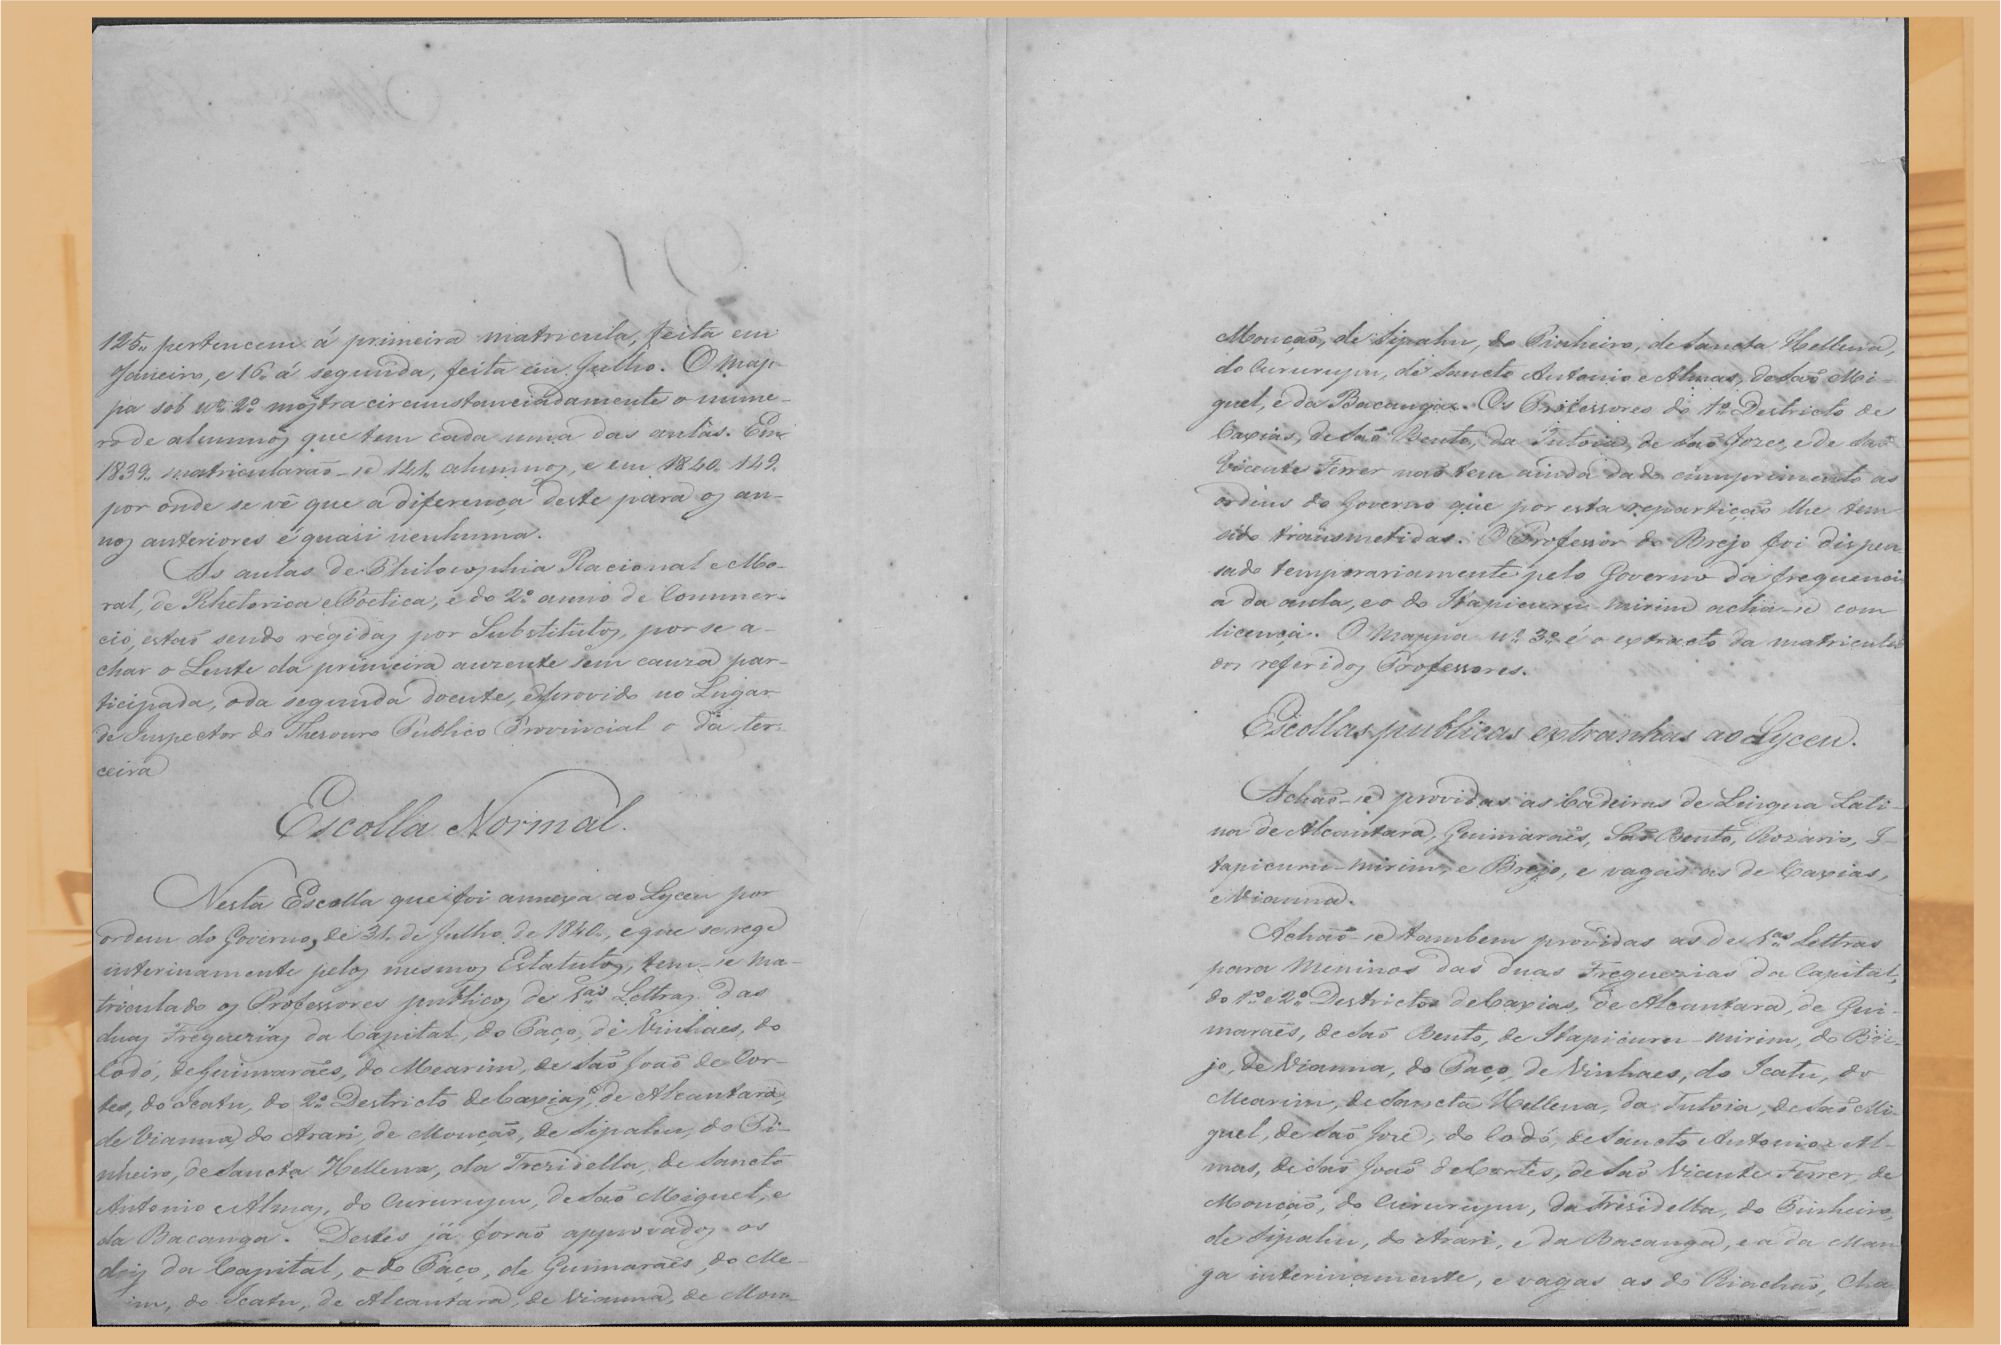 125,, pertencem á primeira matricula, feita em
Janeiro, e 16,, á segunda, feita em Julho. O map-
pa sob nº 2º mostra circumstanciadamente o nume-
ro de alumnos que tem cada uma das aulas. Em
1839,, matricularão-se 141,, alumnos, e em 1840,, 149,,
por onde se vê que a diferença deste para os an-
nos anteriores é quasi nenhuma.
As aulas de Philosophia Racional e Mo-
ral, de Rhetorica e Poetica, e do 2º anno de Commer-
cio, estaõ sendo regidas por Substitutos, por se a-
char o Lente da primeira auzente sem cauza par-
ticipada, o da segunda doente, e provido no Lugar
de Inspector do Thesouro Publico Provincial o da ter-
ceira
Escolla Normal.
Nesta Escolla que foi annexa ao Lyceu por
ordem do Governo, de 31,, de Julho de 1840,, e que se rege
interinamente pelos mesmos Estatutos, tem-se ma-
triculado os Professores publicos de 1as Lettras das
duas Freguezias da Capital, do Paço, de Vinhaes, do
Codó, de Guimarães, do Mearim, de Saõ Joaõ de Cor-
tes, do Icatu, do 2º Destricto de Caxias, de Alcantara,
de Vianna, do Arari, de Monção, de Sipahu, do Pi-
nheiro, de Sancta Hellena, da Trezidella, de Sancto
Antonio e Almas, do Cururupu, de Saõ Miguel, e
da Bacanga. Destes já foraõ approvados os
dois da Capital, o do Paço, de Guimarães, do Me-
im, do Icatu, de Alcantara, de Vianna, de Mon-
Monção, de Sipahu, do Pinheiro, de Sancta Hellena,
do Cururupu, de Sancto Antonio e Almas, de Saõ Mi-
guel, e da Bacanga. Os Professores do 1º Destricto de
Caxias, de Saõ Bento, da Tutoia, de Saõ Joze, e de Saõ
Vicente Ferrer naõ tem ainda dado cumprimento as
ordens do Governo que por esta repartição lhe tem
sido transmetidas. O Professor do Brejo foi dispen-
sado temporariamente pelo Governo da frequenci
a da aula, e o do Itapicuru-mirim acha-se com
licença. O Mappa nº 3º é o extracto da matricula
dos referidos Professores.
Escollas publicas extranhas ao Lyceu.
Achaõ-se providas as Cadeiras de Lingua Lati-
na de Alcantara, Guimarães, Saõ Bento, Rozario, I-
tapicuru-mirim, e Brejo, e vagas as de Caxias,
e Vianna.
Achaõ-se tambem providas as de 1as Lettras
para Meninos das duas Freguezias da Capital,
do 1º e 2º Destrictos de Caxias, de Alcantara, de Gui-
marães, de Saõ Bento, de Itapicuru-mirim, do Bre-
jo, de Vianna, do Paço, de Vinhaes, do Icatu, do
Mearim, de Sancta Hellena, da Tutoia, de Saõ Mi-
guel, de Saõ José, do Codó, de Sancto Antonio e Al-
mas, de Saõ Joaõ de Cortes, de Saõ Vicente Ferrer, de
Monção, do Cururupu, da Trisidella, do Pinheiro,
de Sipahu, do Arari, e da Bacanga, e a da Man
ga interinamente, e vagas as do Riachaõ, Cha-